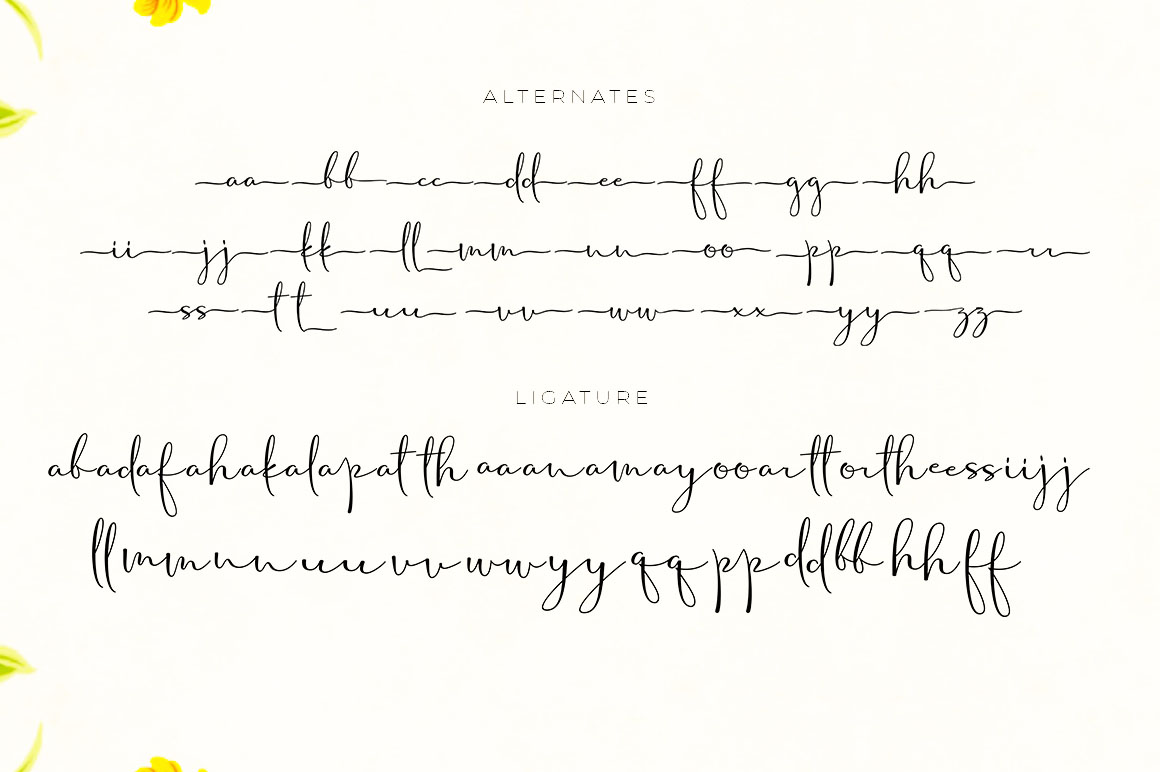 ALTERNATES
aa bb cc dd ee ff gg hh
ii jj kk ll mm nn oo pp qq rr
ss tt uu vv ww xx yy zz
LIGATURE
abadafahakalapat th aaanamayooarttortheessiijj
llmmnnuuvvwwyyqqppddbbhhff